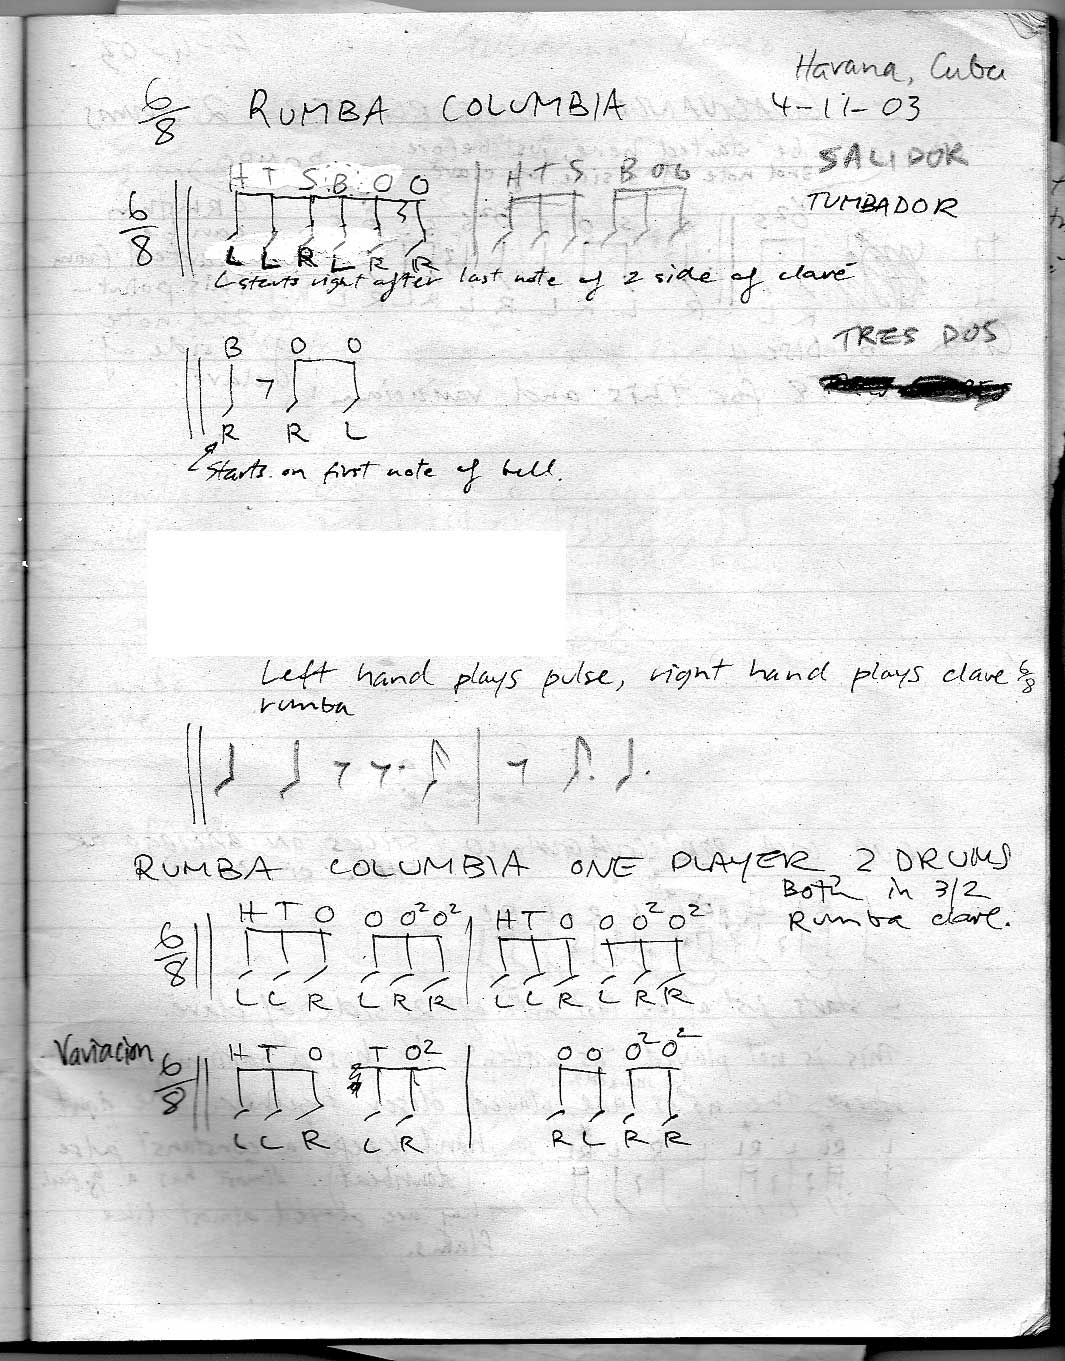 Havana, Cuba
6/8 RUMBA COLUMBIA 4-11-03
SALIDOR
TUMBADOR
H T S B O O H T S B O O
6/8
L L R L R R
starts right after last note of 2 side of clave
TRES DOS
B O O
R R L
starts on first note of bell.
Left hand plays pulse, right hand plays clave 6/8
rumba
RUMBA COLUMBIA ONE PLAYER 2 DRUMS
Both in 3/2
Rumba clave.
H T O O O² O² H T O O O² O²
6/8
L L R L R R L L R L R R
Variacion 6/8
H T O T O2 O O O² O²
L L R L R R L R R